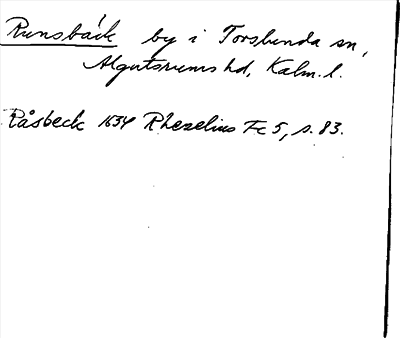 Runsbäck by i Torslunda sn,
Algutsrums hd, Kalm. l.
Råsbeck 1634 Rhezelius Fc 5, s. 83.